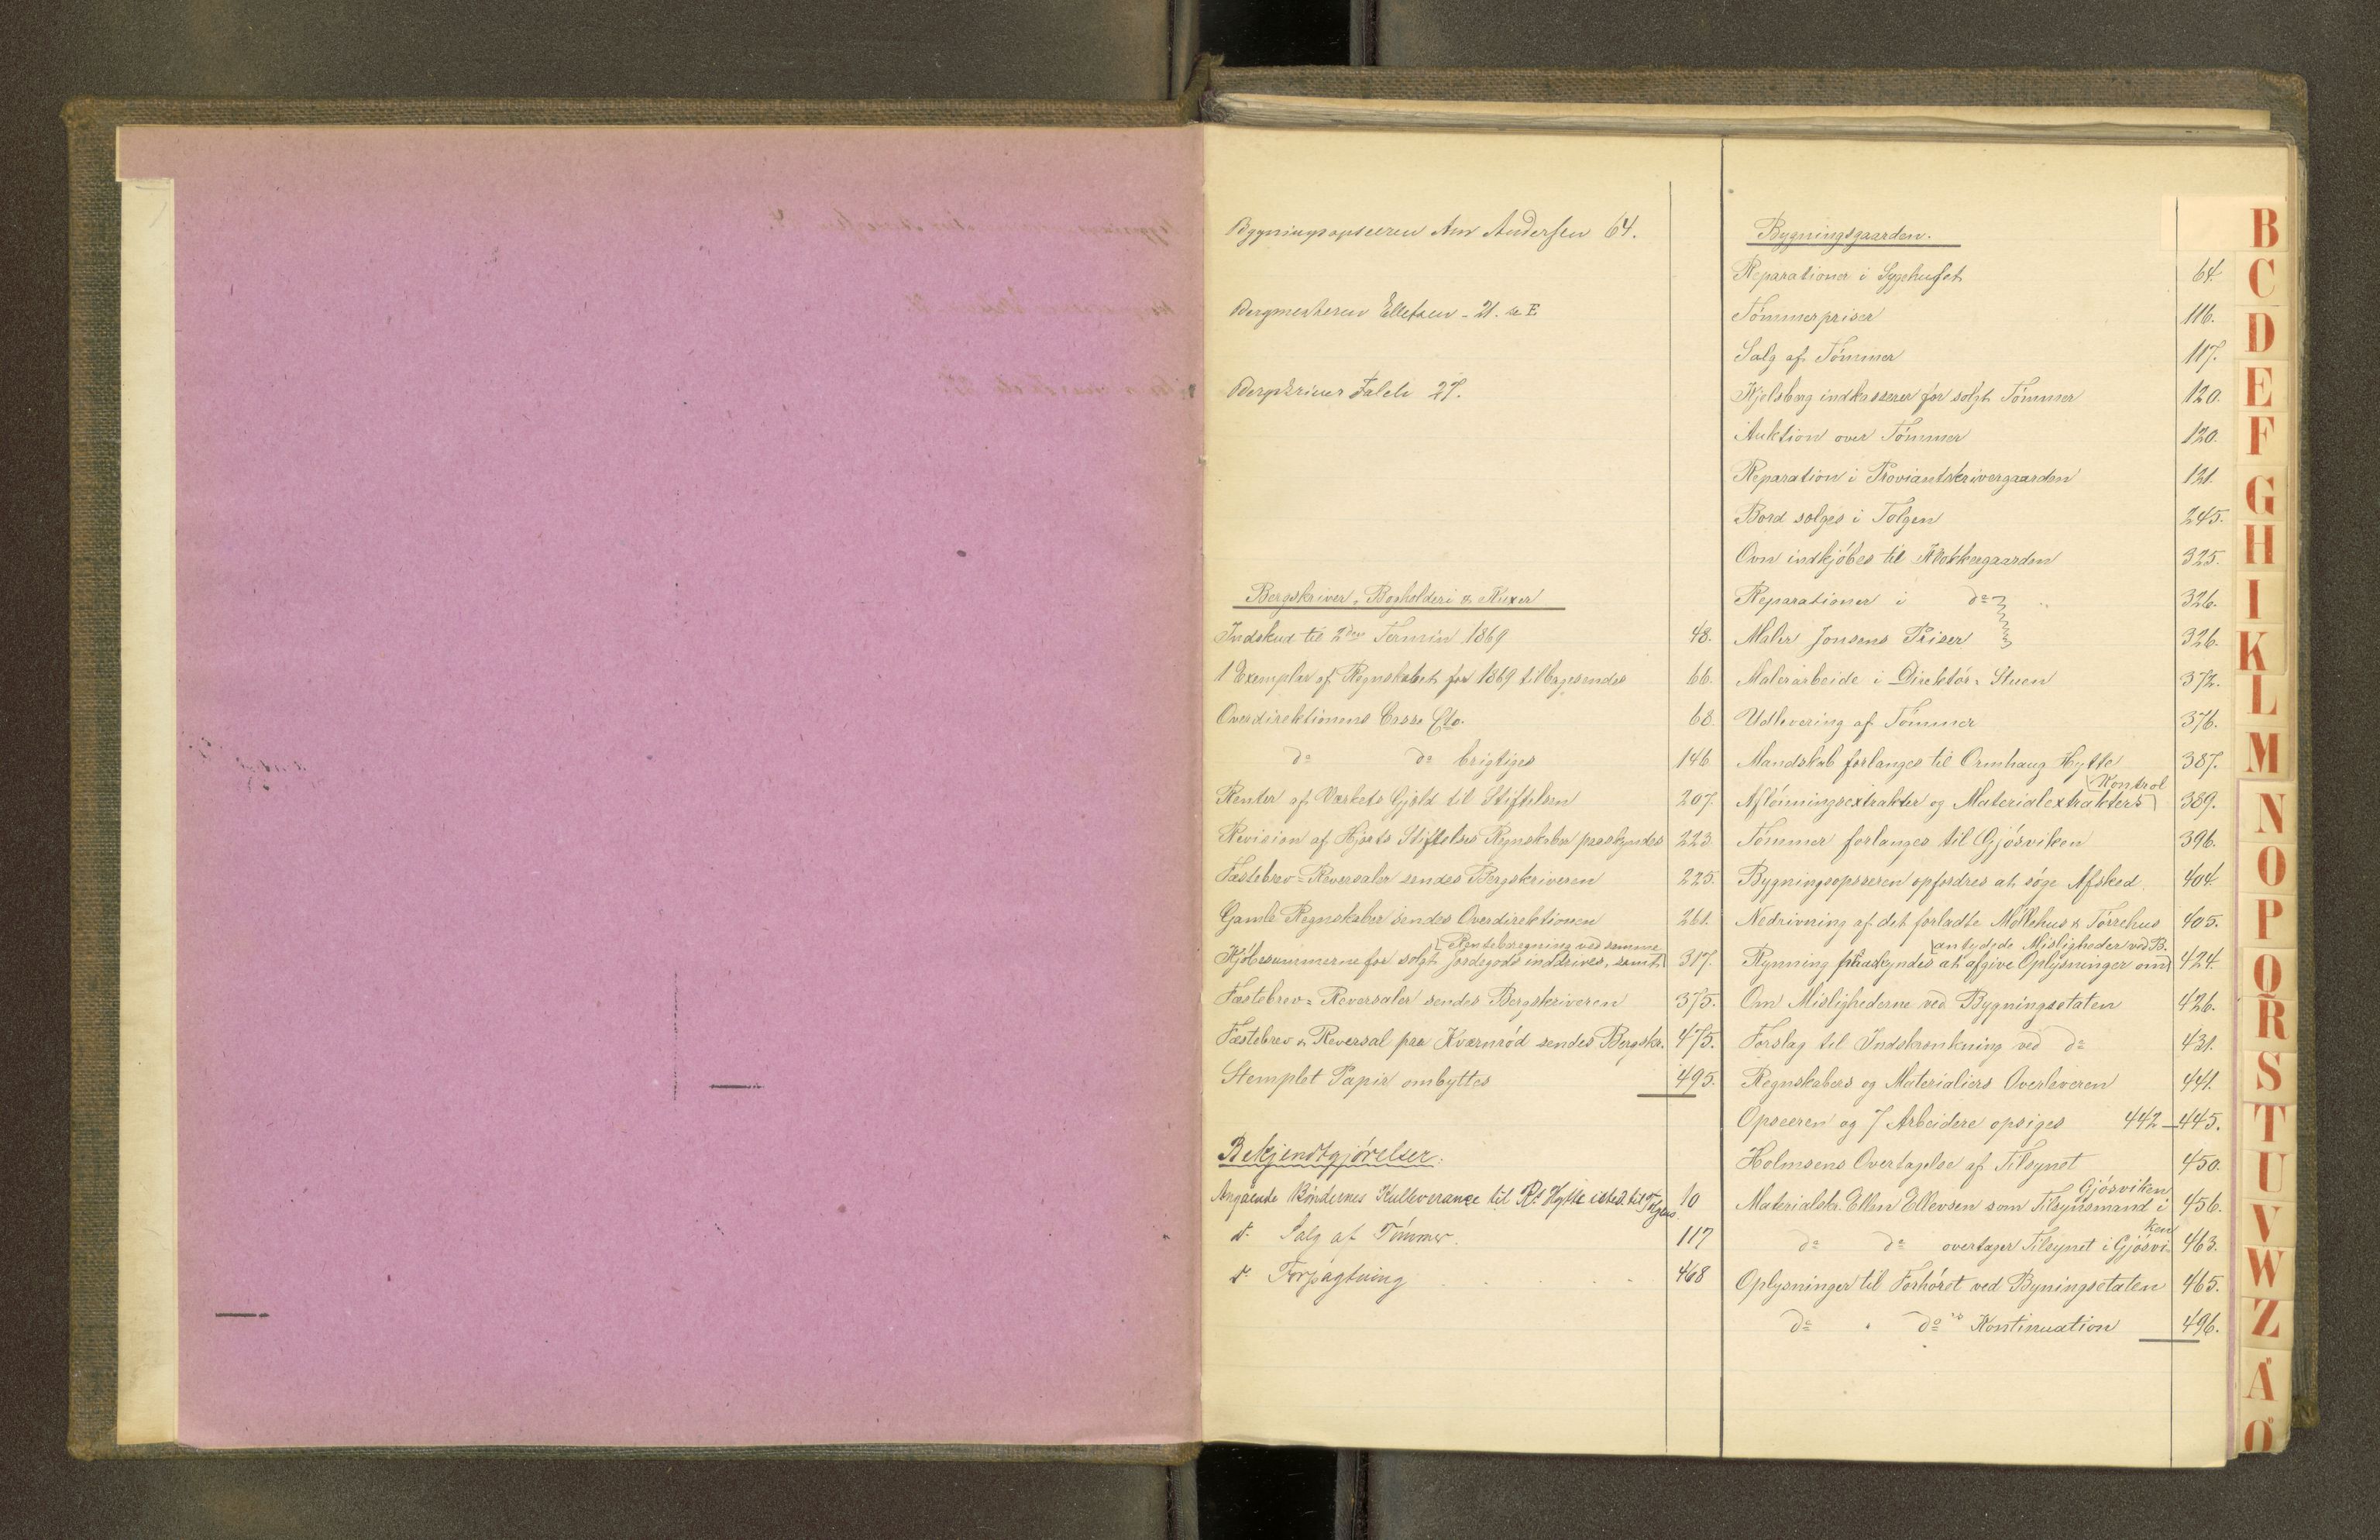 Bygningsopseeren Andersen 64.
Bergmesteren Elletsen - 21. se E.
Bergskriver 27.
Bergskriver, Bogholderi &
Indskud til 2den Termin 1869 48.
1 Exemplar af Regnskabet for 1869 tilbagesendes 66.
Overdirektionens Casse Cto. 68
do do brigtiges 146
Renter af Værkets Gjæld til Stiftelsen 207.
Revision af Hjorts Stiftelses Regnskaber paaskyndes 223.
Fæstebrev-Reversaler sendes Bergskriveren 225.
Gamle Regnskaber sendes Overdirektionen 261.
Renteberegning ved samme
Kjöbesummerne for solgt Jordegods inddrives, samt 317.
Fæstebrev-Reversaler sendes Bergskriveren 375.
Fæstebrev & Reversal paa Kværnröd sendes Bergskr. 475.
Stemplet Papir ombyttes 495.
Bekjendtgjörelser.
Angående Böndernes Kulleverance til Rs Hytte isted. til Tolgens 10
do Salg af Tömmer. 117
do Forpagtning 468
Bygningsgaarden.
Reparationer i Sygehuset 64.
Tömmerpriser 116.
Salg af Tömmer 117.
Kjelsberg indkasserer for solgt Tömmer 120.
Auktion over Tömmer 120.
Reparation i Proviantskrivergaarden 121.
Bord sælges i Tolgen 245.
Ovn indkjöbes til Klokkergaarden 325.
Reparationer i do 326.
Maler Jonsens Priser 326.
Malerarbeide i Direktör-Stuen 372.
Udlevering af Tömmer 376.
Mandskab forlanges til Ormhaug Hytte 387.
Kontrol
Aflönningsextrakter og Materialextrakters 389.
Tömmer forlanges til Gjösviken 396.
Bygningsopseeren opfordres at söge Afsked. 404.
Nedrivning af det forladte Möllehus & Törrehus 405.
antydede Misligheder ved B.
Rynning paaskyndes at afgive Oplysninger om 424.
Om Mislighederne ved Bygningsetaten 426.
Forslag til Indskrænkning ved do 431.
Regnskabers og Materialiers Overleveren 441.
Opseeren og 7 Arbeidere opsiges 442-445.
Holmsens Overtagelse af Tilsynet 450.
Gjösviken
Materialskr. Ellen Ellevsen som Tilsynsmand i 456.
ken
do do overtager Tilsynet i Gjösvi- 463.
Oplysninger til Forhöret ved Bygningsetaten 465.
do do's Kontinuation 496.
B
C
D
E
F
G
H
I
K
L
M
N
O
P
Q
R
S
T
U
V
W
Z
Å
Ø